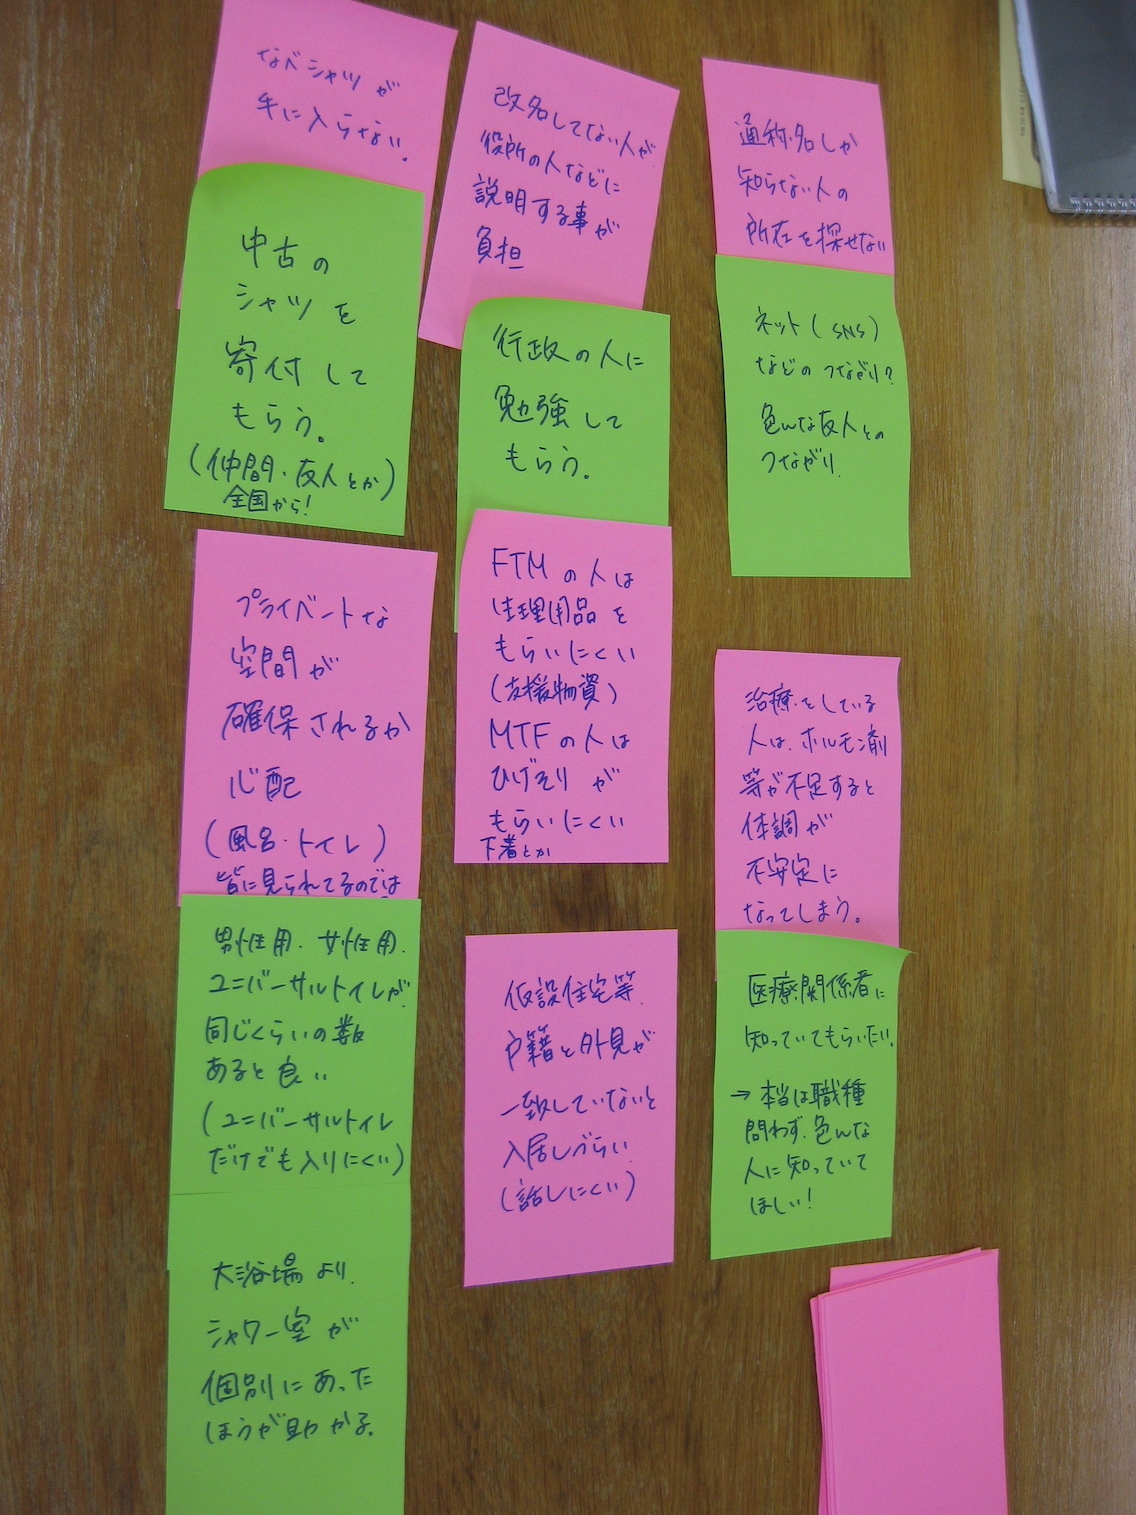 なべシャツが
手に入らない。
中古の
シャツを
寄付して
もらう。
(仲間・友人とか)
全国から!
プライベートな
空間が
確保されるか
心配
(風呂・トイレ)
皆に見られてるのでは
男性用、女性用、
ユニバーサルトイレが
同じくらいの数
あると良い
(ユニバーサルトイレ
だけでも入りにくい)
大浴場より、
シャワー室が
個別にあった
ほうが助かる。
改名してない人が
役所の人などに
説明する事が
負担
行政の人に
勉強して
もらう。
FTMの人は
生理用品を
もらいにくい
(支援物資)
MTFの人は
ひげそりが
もらいにくい
下着とか
仮設住宅等、
戸籍と外見が
一致していないと
入居しづらい
(話しにくい)
通称名しか
知らない人の
所在を探せない
ネット(SNS)
などのつながり?
色んな友人との
つながり
治療をしている
人は、ホルモン剤
等が不足すると
体調が
不安定に
なってしまう。
医療関係者に
知っていてもらいたい。
→本当は職種
問わず、色んな
人に知っていて
ほしい!